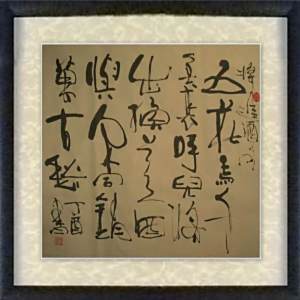 將進酒句
五花馬千
金裘呼兒將
出換美酒
與尔同銷
萬古愁
丁酉